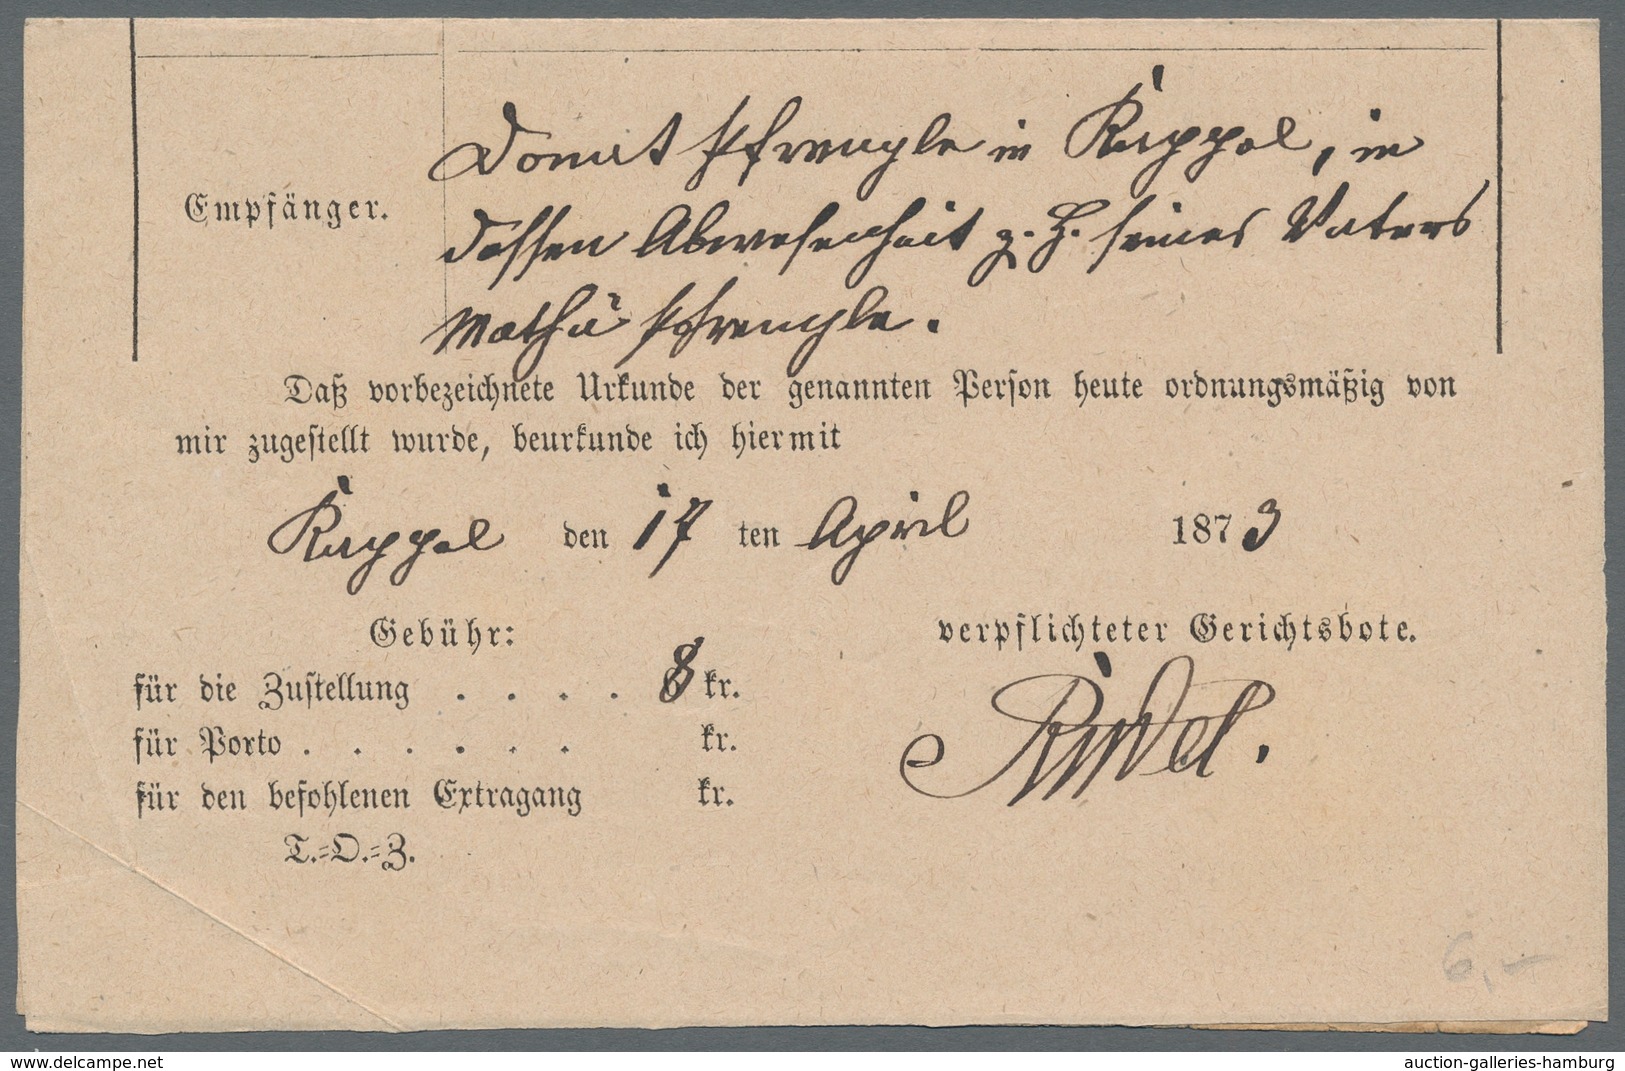 Empfänger.
Donat Pfrengle in Kappel, in
dessen Abwesenheit z. H. seines Vaters
Mathä Pfrengle.
Daß vorbezeichnete Urkunde der genannten Person heute ordnungsmäßig von
mir zugestellt wurde, beurkunde ich hiermit
Kappel den 17 ten April 1873
Gebühr:
verpflichteter Gerichtsbote.
für die Zustellung . . . . 8 kr.
für Porto . . . . . . kr.
für den befohlenen Extragang kr.
T.=O.=Z.
6,-
www.delcampe.net
auction-galleries-hamburg